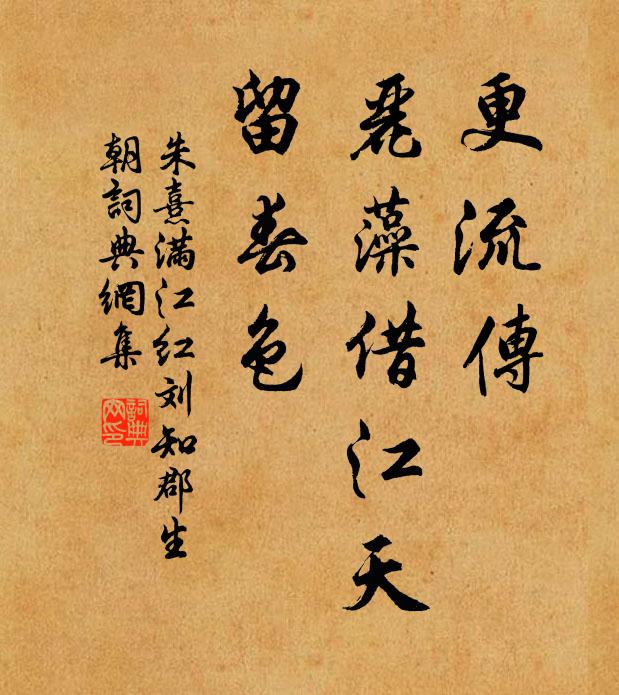 更流傳
麗藻借江天
留春色
朱熹满江红刘知郡生
朝詞典網集
詞典
网印